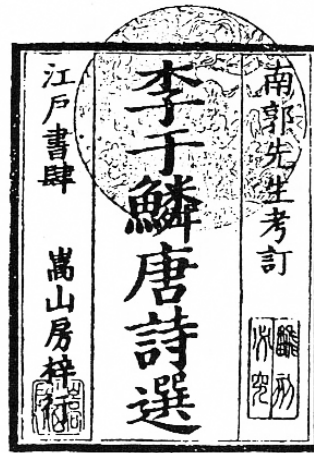 南郭先生考訂
李于鱗唐詩選
江戸書肆 嵩山房梓行